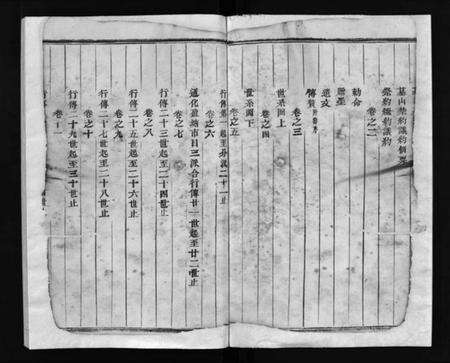 墓山禁約議約條規
祭約輪約議約
卷之二
勅命
題
遺文
傳贊
卷之三
世系圖上
卷之四
世系圖下
卷之五
行傳第一世起至二十一止
卷之六
遠市目三派合行傳廿一世起至廿二世止
卷之七
行傳二十三世起至二十四世止
卷之八
行傳二十五世起至二十六世止
卷之九
行傳二十七世起至二十八世止
卷之十
行傳二十九世起至三十世止
卷十一
行傳